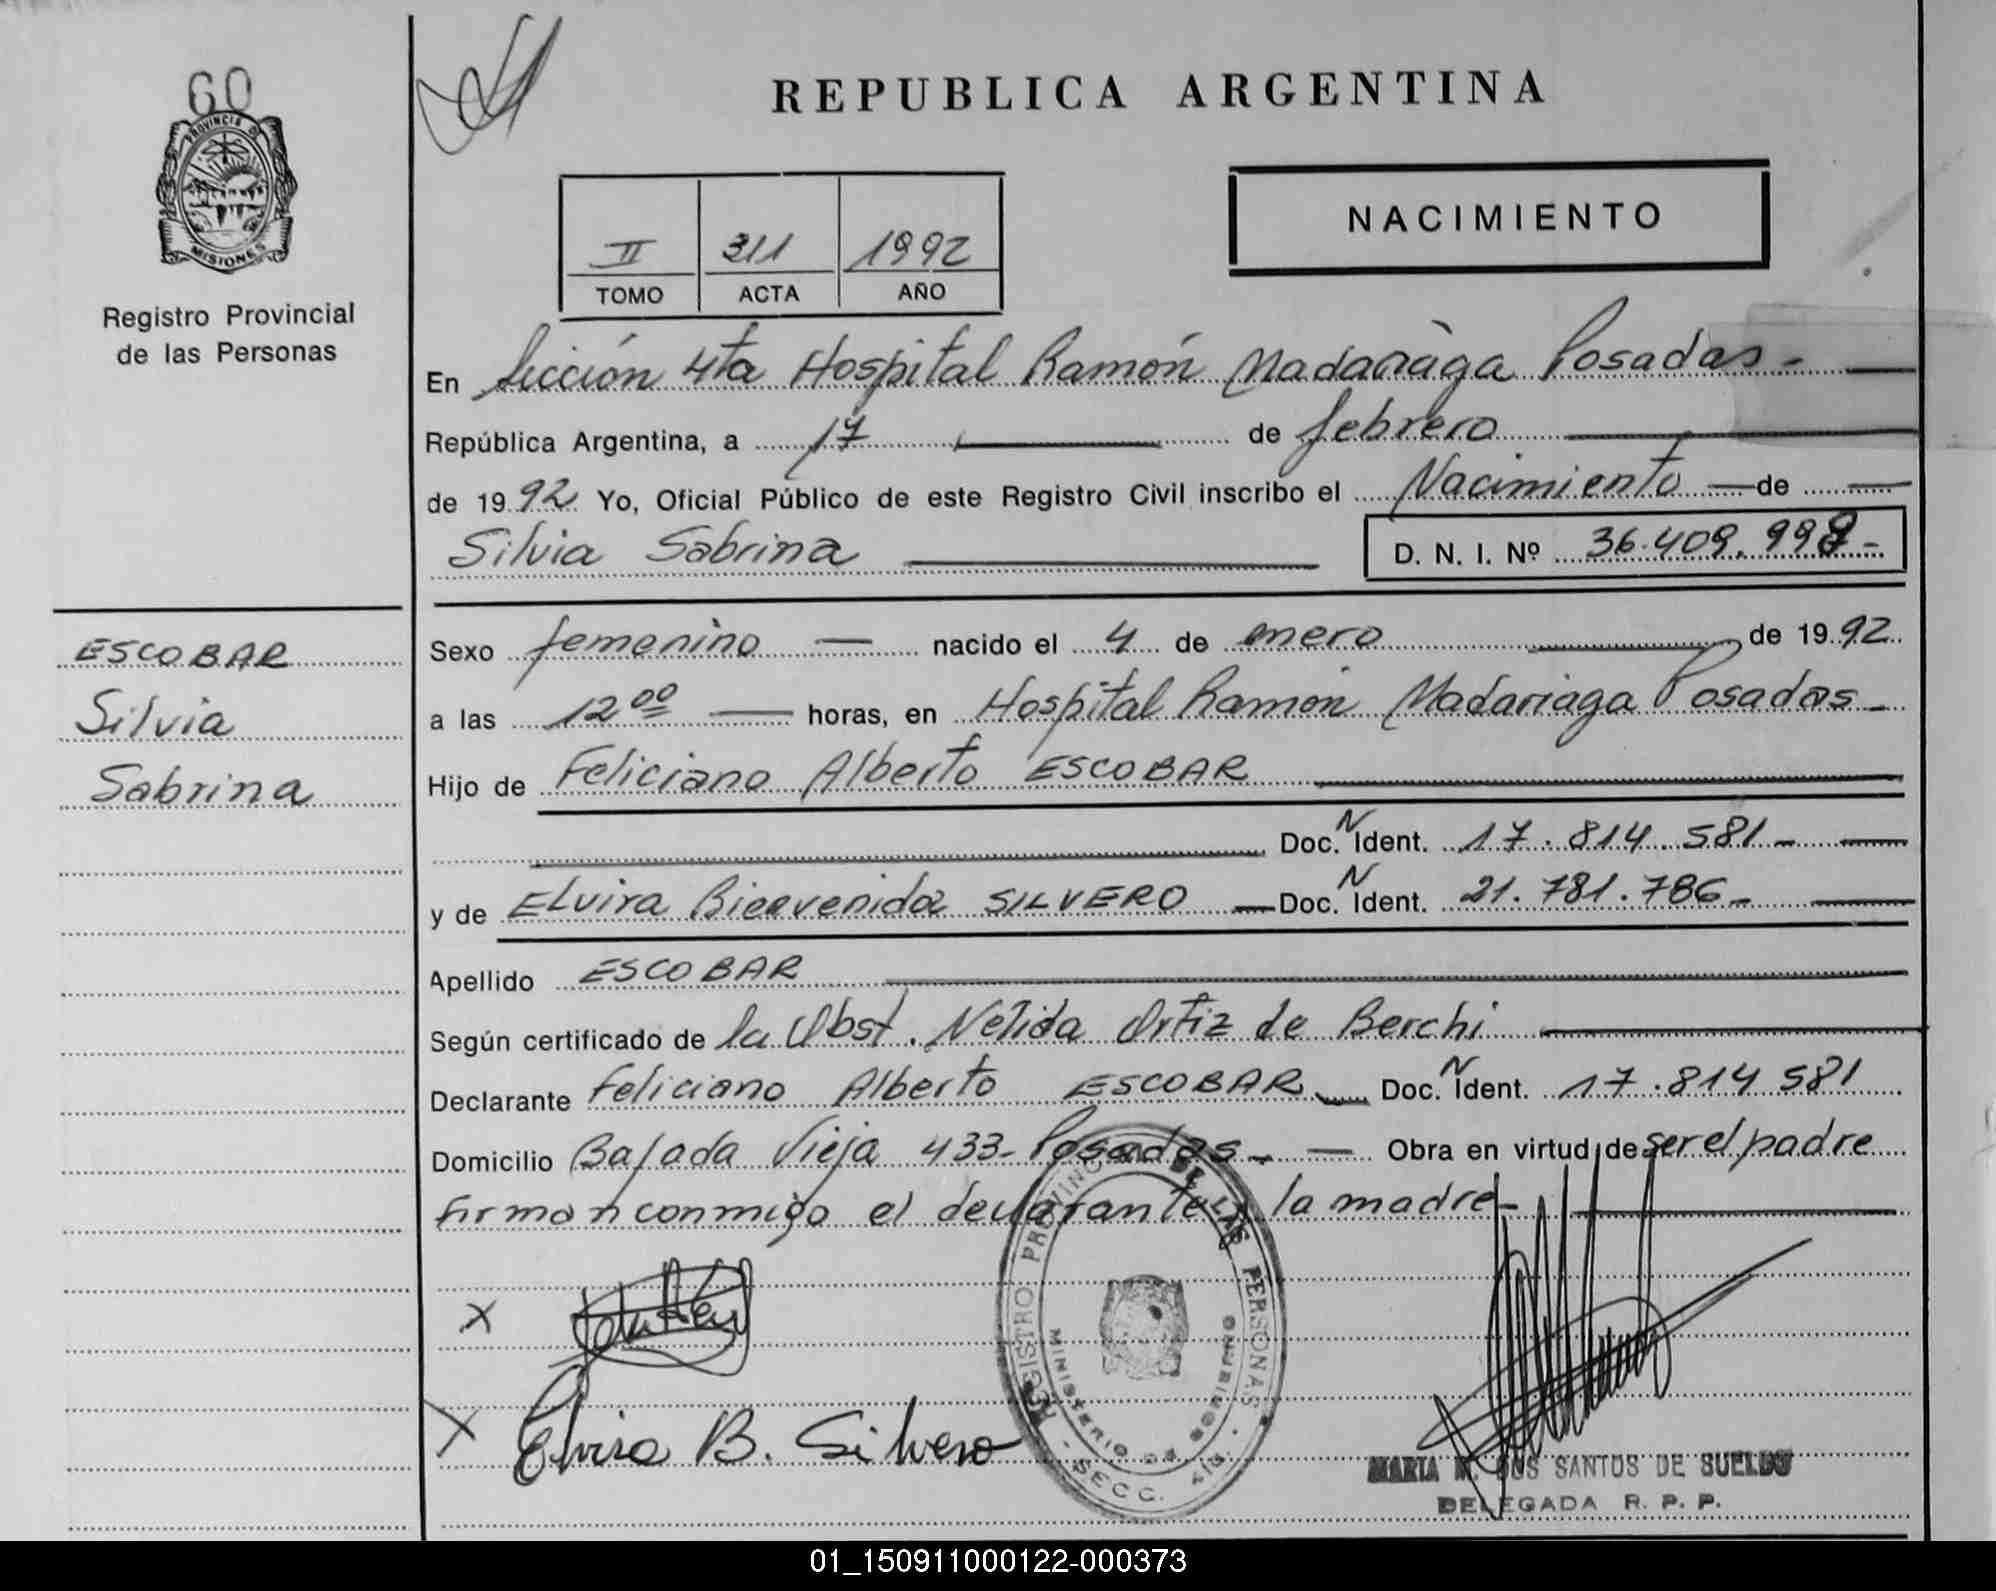 60
PROVINCIA DE
MISIONES
Registro Provincial
de las Personas
ESCOBAR
Silvia
Sabrina
REPUBLICA ARGENTINA
II 311 1992
TOMO ACTA AÑO
NACIMIENTO
En Sección 4ta Hospital Ramón Madariaga Posadas -
República Argentina, a 17 de febrero
de 1992 Yo, Oficial Público de este Registro Civil inscribo el Nacimiento de
Silvia Sabrina
D. N. I. Nº 36.409.998-
Sexo femenino nacido el 4 de enero de 1992
a las 12 00 horas, en Hospital Ramón Madariaga Posadas -
Hijo de Feliciano Alberto ESCOBAR
Doc. N Ident. 17.814.581 -
y de Elvira Bienvenida SILVERO Doc. N Ident. 21.781.786 -
Apellido ESCOBAR
Según certificado de la Obst. Nelida Ortiz de Berchi
Declarante Feliciano Alberto ESCOBAR Doc. N Ident. 17.814 581
Domicilio Bajada Vieja 433 - Posadas - Obra en virtud de ser el padre
firman conmigo el declarante y la madre -
x
x Elvira B. Silvero
REGISTRO PROVINCIAL DE LAS PERSONAS
MINISTERIO DE GOBIERNO
- SECC. 4ta. -
MARIA DOS SANTOS DE SUELDO
DELEGADA R. P. P.
01_150911000122-000373